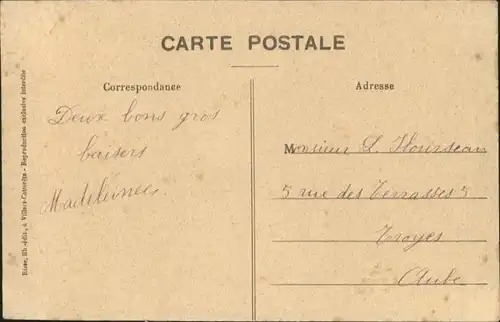 CARTE POSTALE
Correspondance
Deux bons gros
baisers
Madeleine
Adresse
Monsieur L. Hourseau
5 rue des Terrasses 5
Troyes
Aube
Risse, lib.-édit., à Villers-Cotterêts - Reproduction exclusive interdite